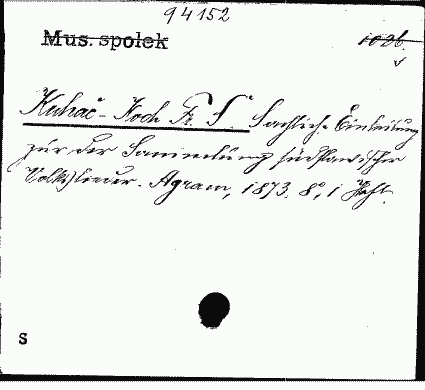 94152
Mus. spolek
102b
Kuhač-Koch Fr. S. Sachliche Einleitung
zur der Sammlung südslawischer
Volkslieder. Agram, 1873. 8°, 1
S